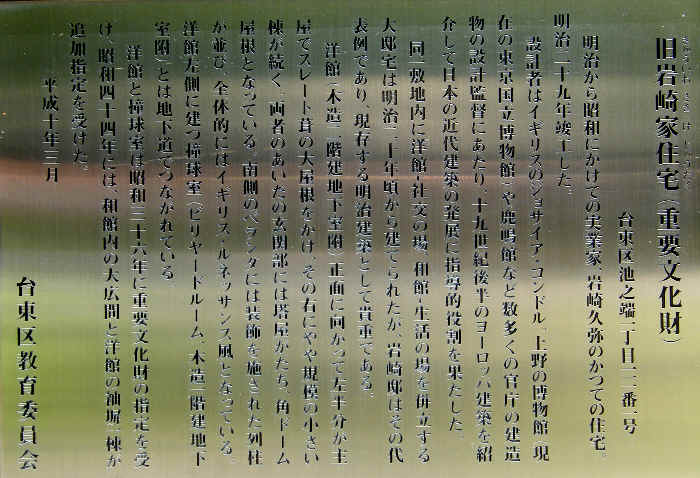 旧岩崎家住宅（重要文化財）
台東区池之端一丁目
明治から昭和にかけての実業家、岩崎久弥のかつての住宅。
明治二十九年竣工した。
設計者はイギリスのジョサイア・コンドル、上野の博物館（現
在の東京国立博物館）や鹿鳴館など数多くの官庁の建造
物の設計監督にあたり、十九世紀後半のヨーロッパ建築を紹
介して日本の近代建築の発展に指導的役割を果たした。
同一敷地内に洋館・社交の場、和館・生活の場を併立する
大邸宅は明治二十年頃から建てられたが、岩崎邸はその代
表例であり、現存する明治建築として貴重である。
洋館（木造二階建地下室附）正面に向かって左半分が主
屋でスレート葺の大屋根をかけ、その右にやや規模の小さい
棟が続く。両者のあいだの玄関部には塔屋がたち、角ドーム
屋根となっている。南側のベランダには装飾を施された列柱
が並び、全体的にはイギリス・ルネッサンス風となっている。
洋館左側に建つ撞球室（ビリヤードルーム、木造一階建地下
室附）とは地下道でつながれている。
洋館と撞球室は昭和三十六年に重要文化財の指定を受
け、昭和四十四年には、和館内の大広間と洋館の袖塀一棟が
追加指定を受けた。
平成十年三月
台東区教育委員会